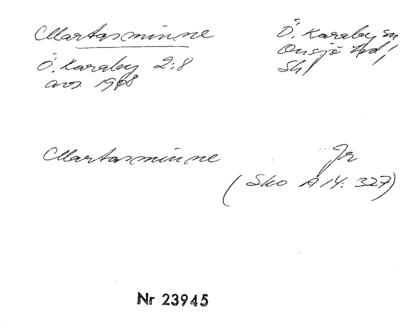 Martasminne
Ö. Karaby 2:8
avs 1968
Ö. Karaby sn
Onsjö hd,
Sk
Martasminne Jr
(Sko A 14: 327)
Nr 23945